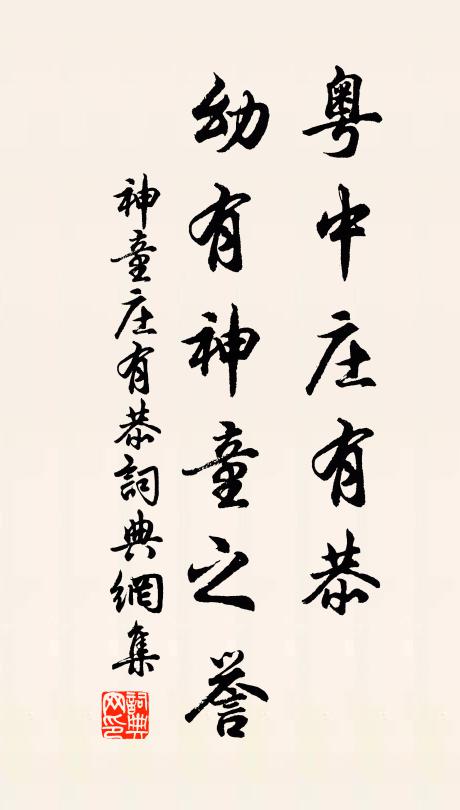 粤中庄有恭
幼有神童之誉
神童庄有恭詞典網集
詞典网印